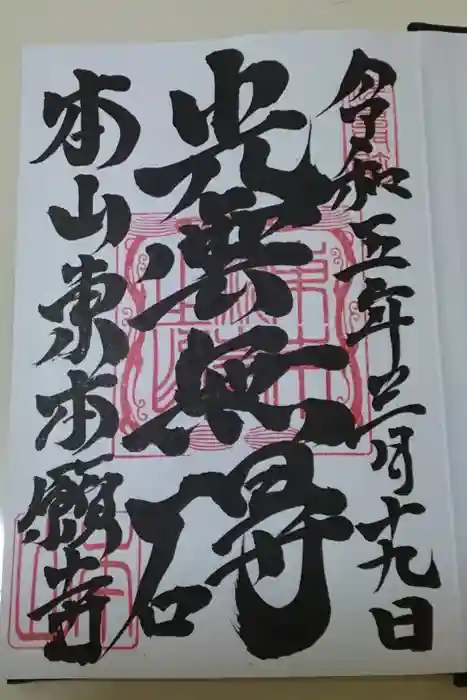 令和五年三月十九日
光雲無碍
本山東本願寺